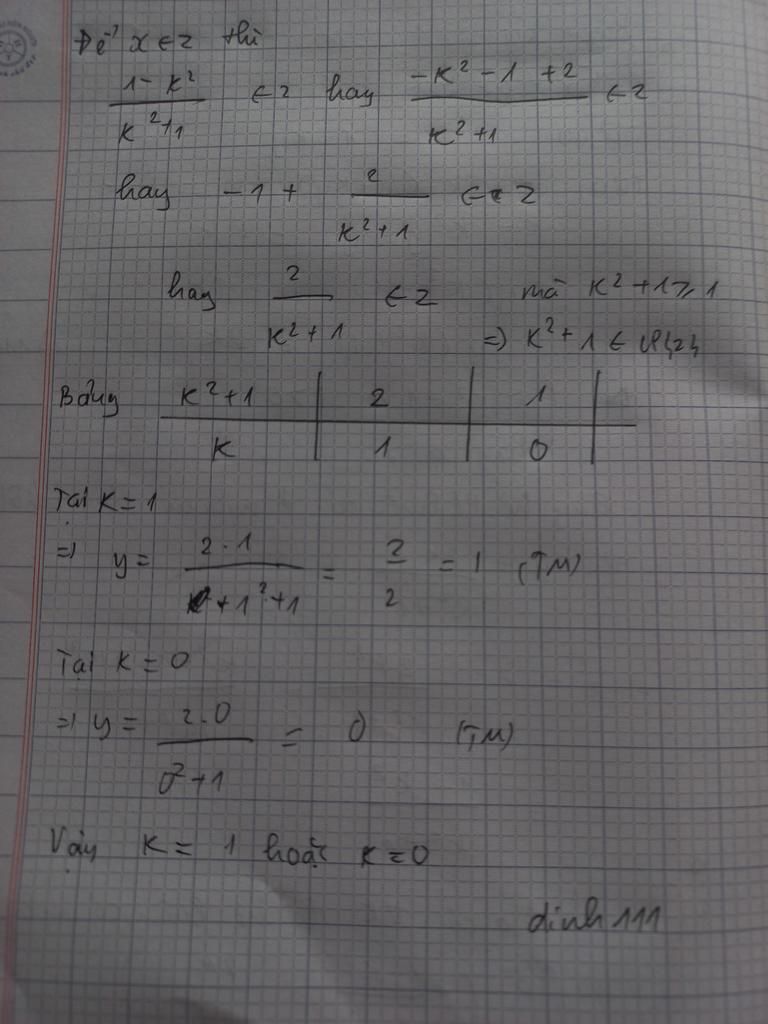 Để x ∈ Z thì
(1 - K²)/(K² + 1) ∈ Z hay (-K² - 1 + 2)/(K² + 1) ∈ Z
hay -1 + 2/(K² + 1) ∈ Z
hay 2/(K² + 1) ∈ Z mà K² + 1 ≥ 1
=> K² + 1 ∈ {1;2}
Bảng K² + 1 | 2 | 1 |
K | 1 | 0 |
Tại K = 1
=> y = 2.1/(1² + 1) = 2/2 = 1 (TM)
Tại K = 0
=> y = 2.0/(0² + 1) = 0 (TM)
Vậy K = 1 hoặc K = 0
dinh 111